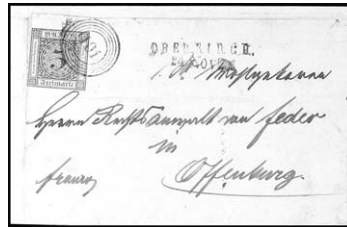 BADEN
Freimarke
104
OBERKIRCH.
24 NOV
Herrn Rechtsanwalt von Feder
in
Offenburg.
franco